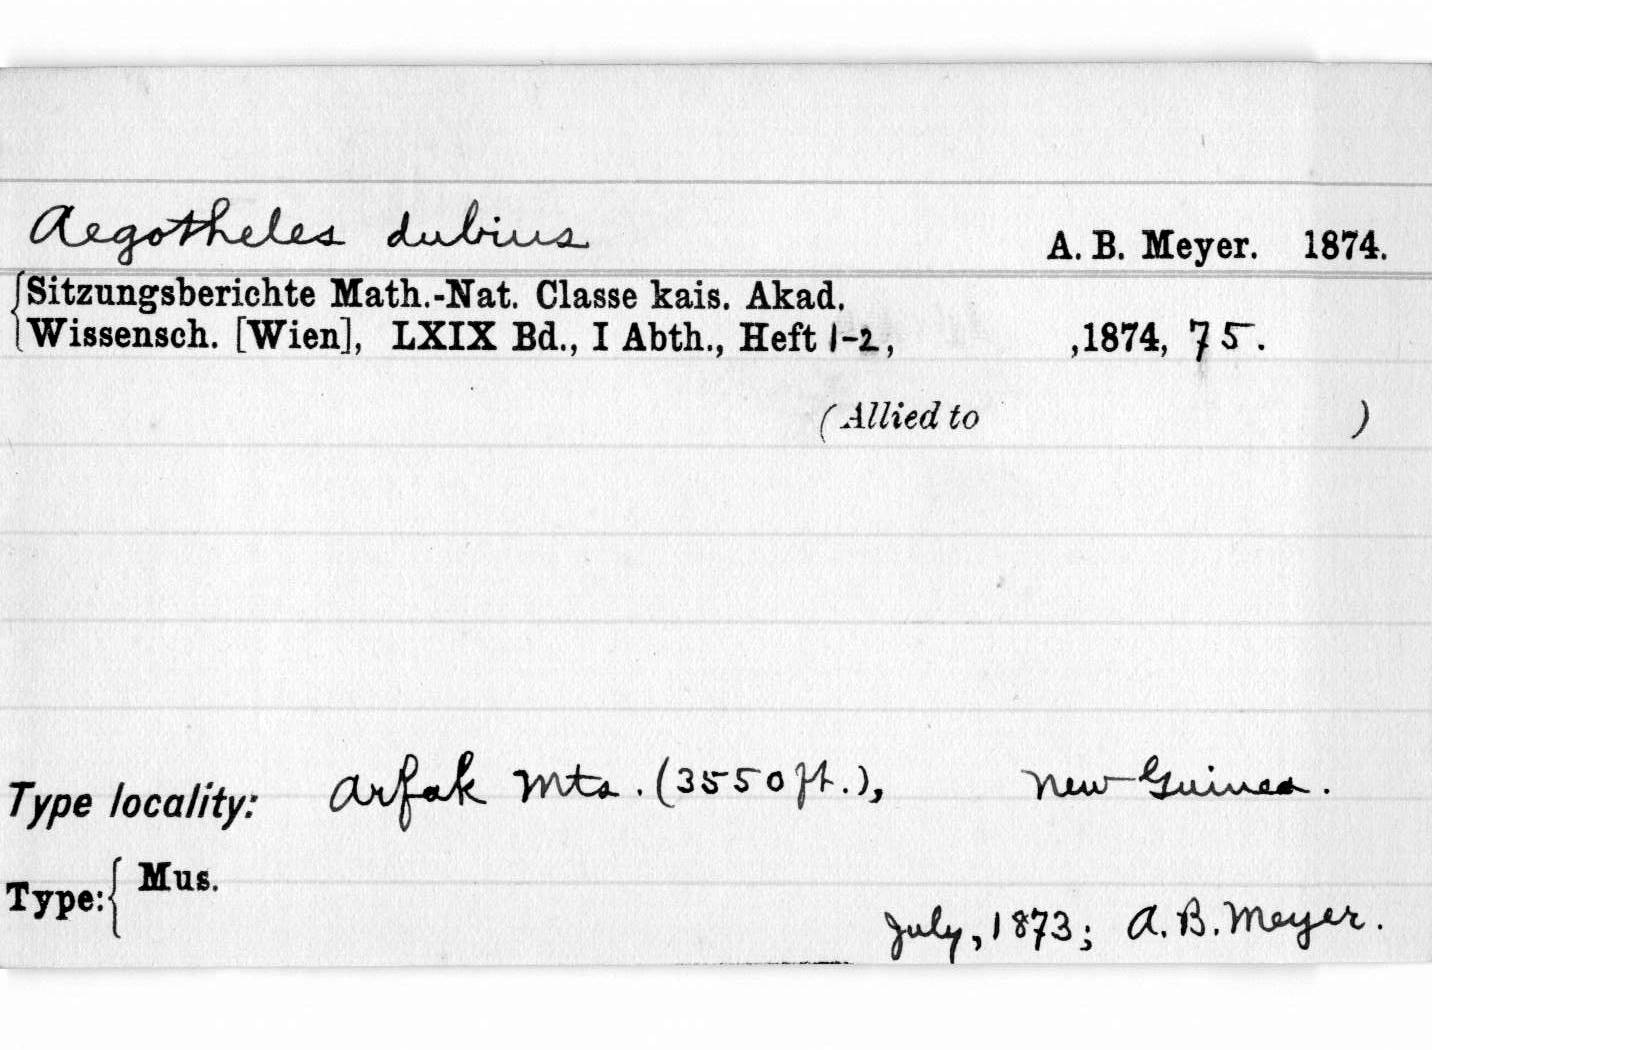 Aegotheles dubius A. B. Meyer. 1874.
Sitzungsberichte Math.-Nat. Classe kais. Akad.
Wissensch. [Wien], LXIX Bd., I Abth., Heft 1-2, ,1874, 75.
(Allied to )
Type locality: Arfak Mts. (3550 ft.), New Guinea.
Type: { Mus.
July, 1873; A. B. Meyer.